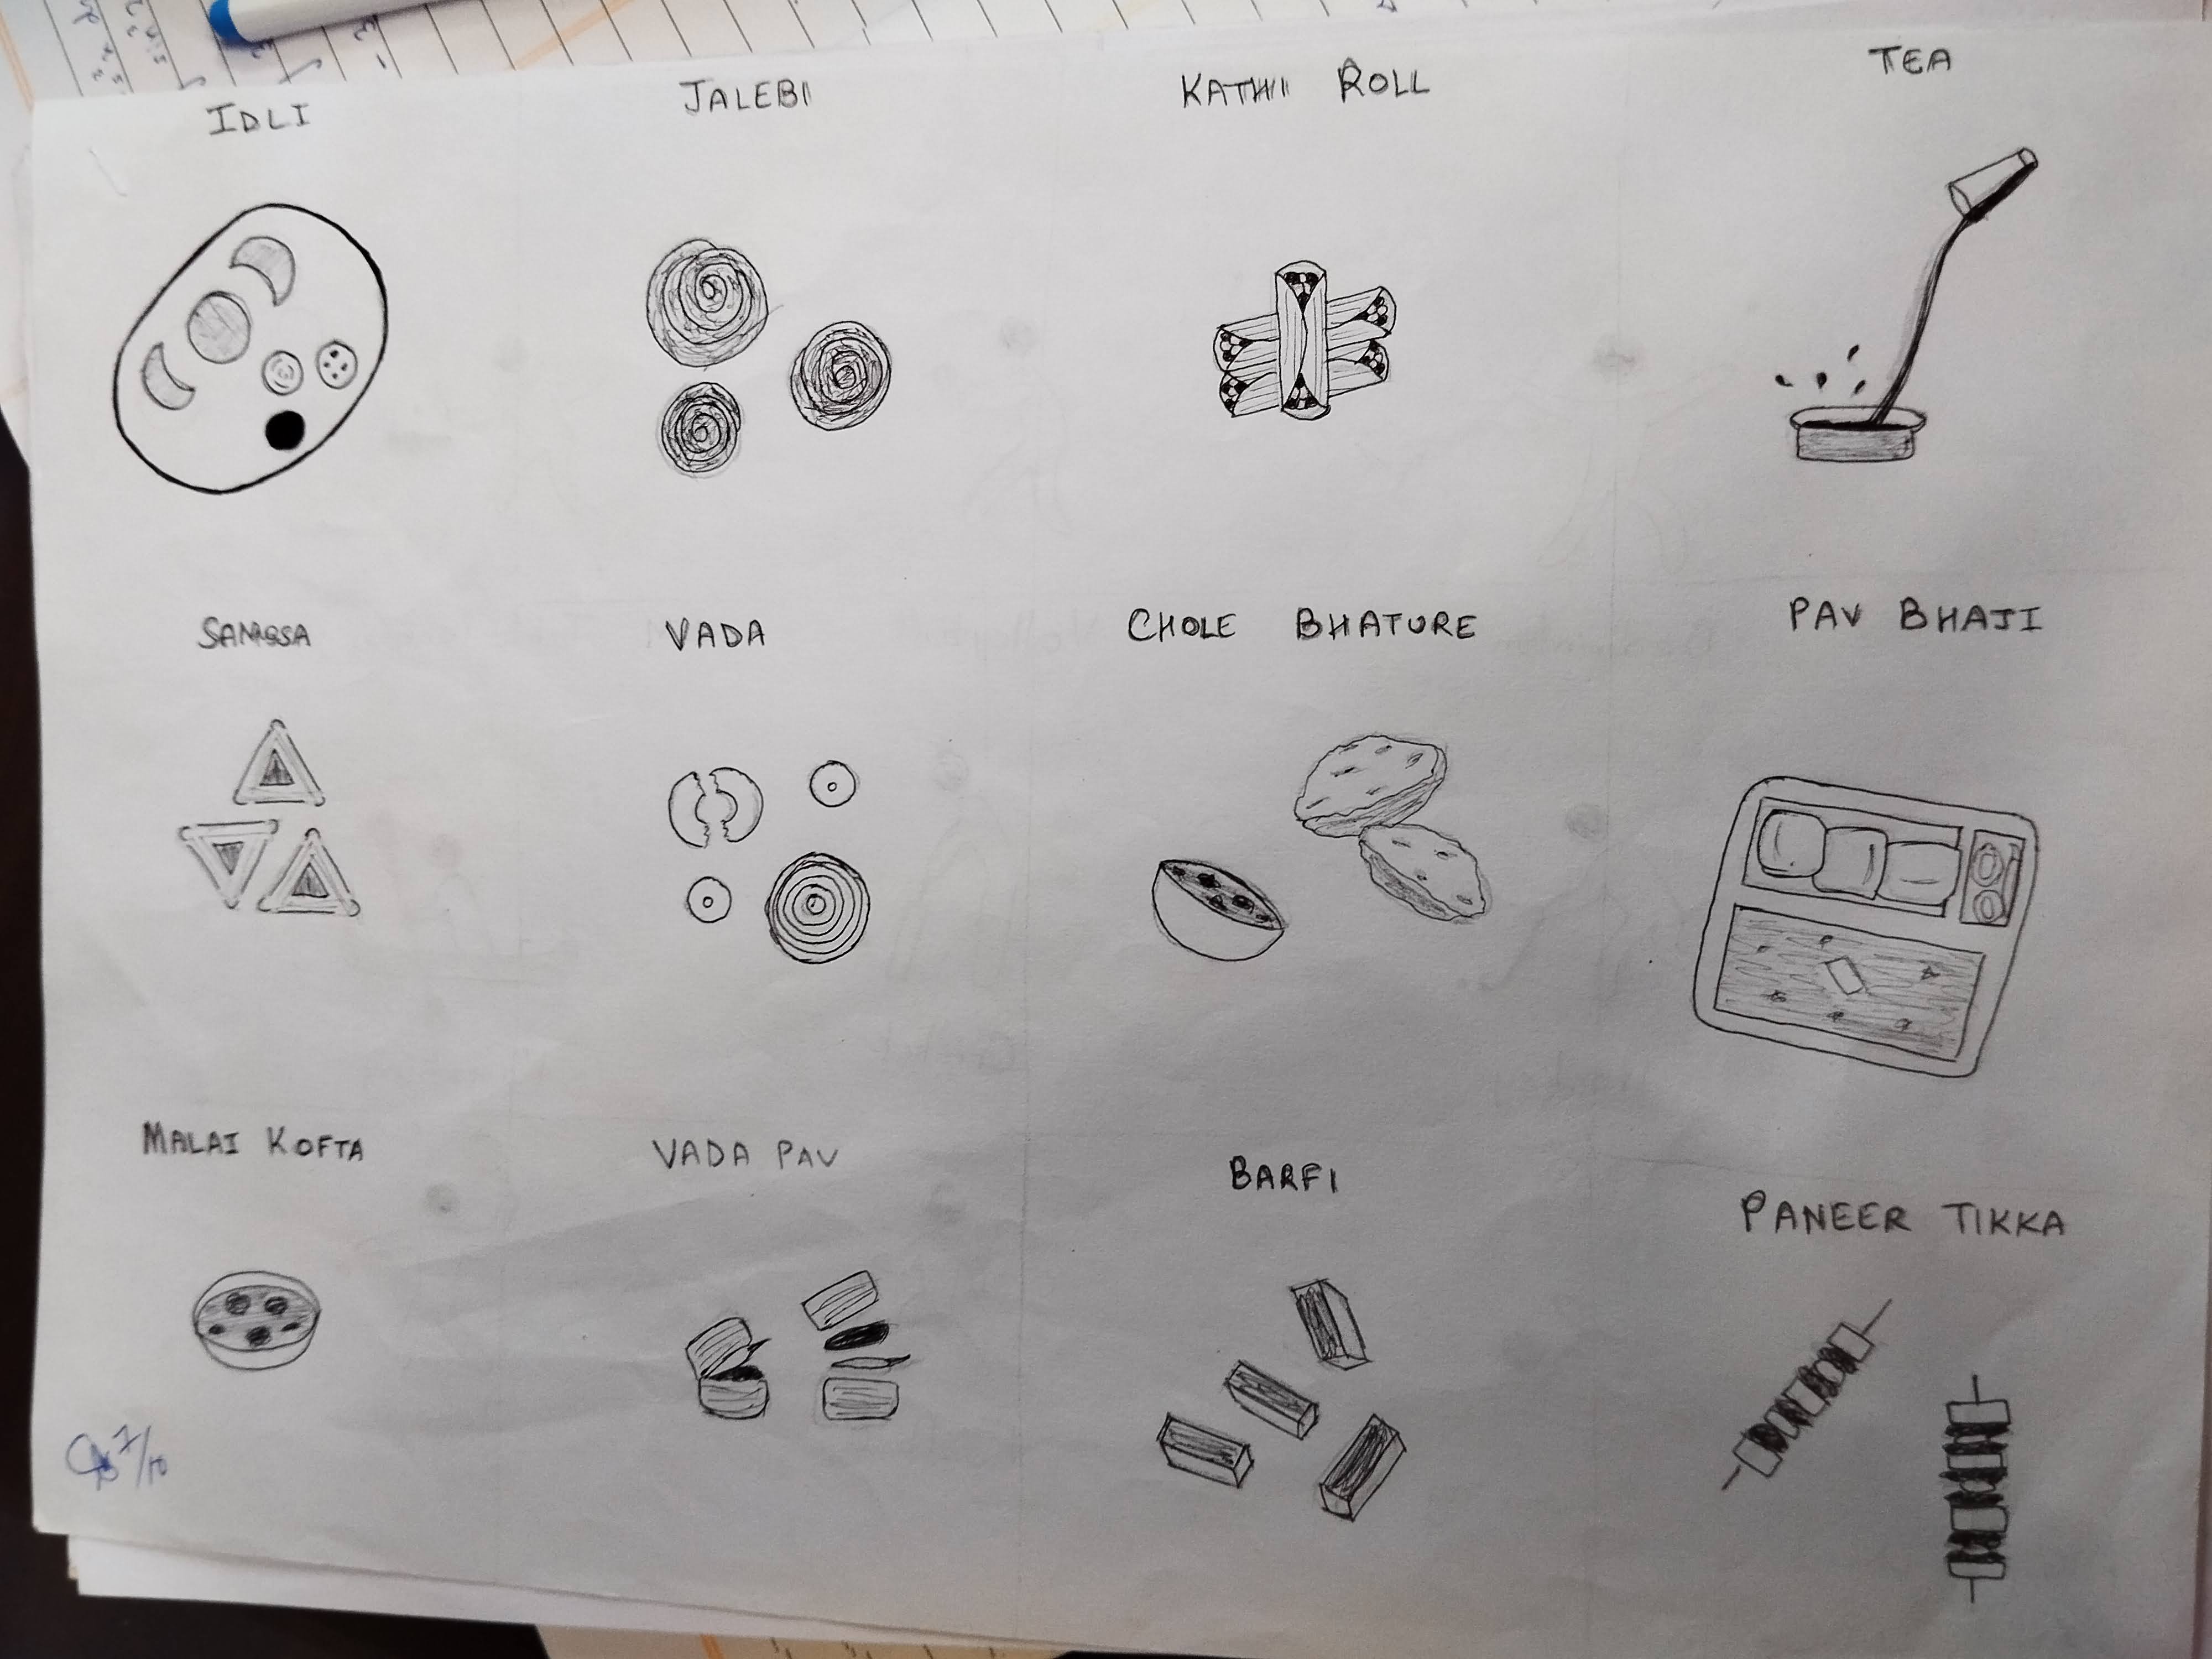 IDLI
JALEBI
KATHI ROLL
TEA
SAMOSA
VADA
CHOLE BHATURE
PAV BHAJI
MALAI KOFTA
VADA PAV
BARFI
PANEER TIKKA
7/10